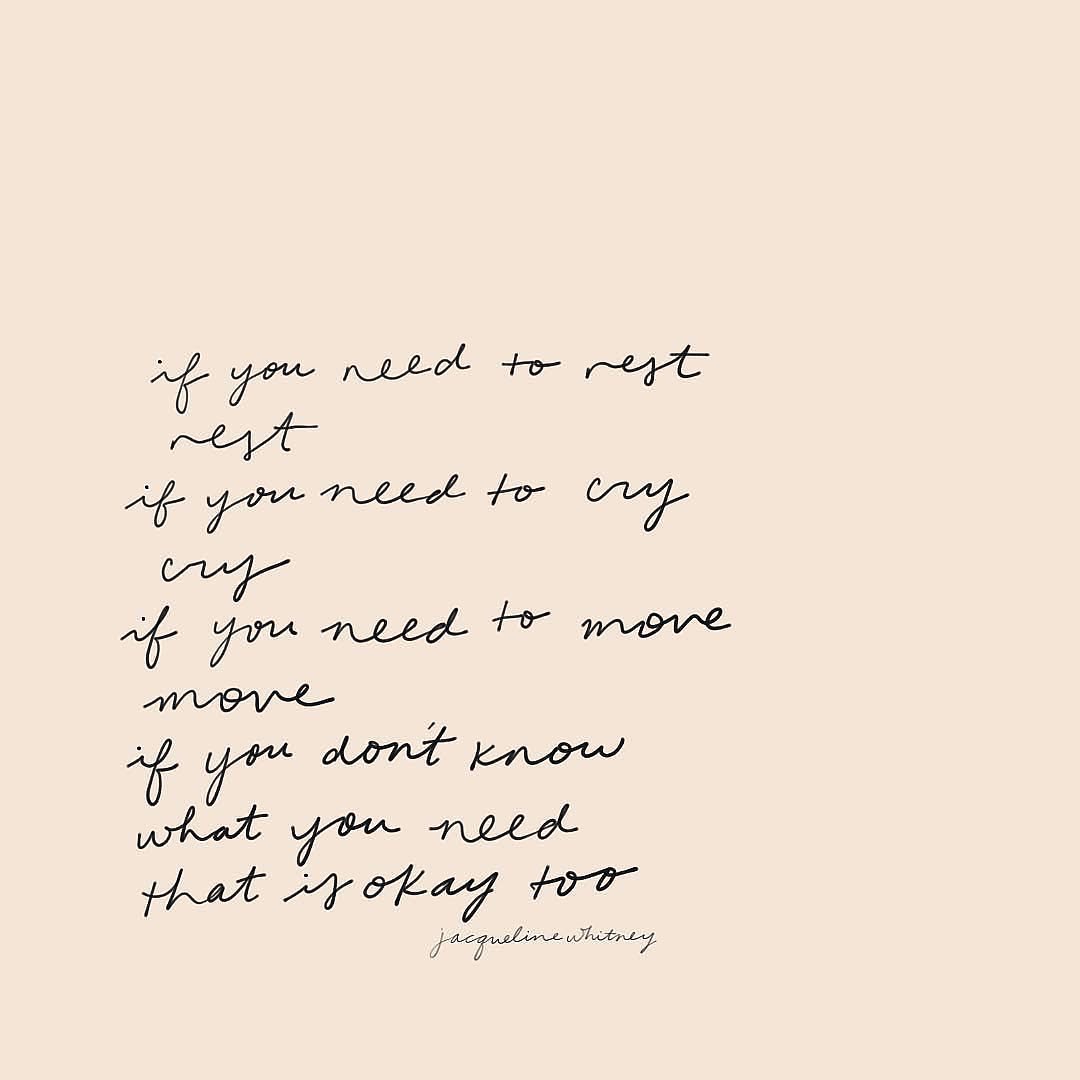 if you need to rest
rest
if you need to cry
cry
if you need to move
move
if you don't know
what you need
that is okay too
jacqueline whitney